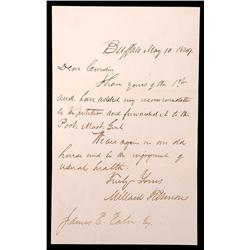 Buffalo May 10 1849.
Dear Cousin,
I have yours of the 1st
and have added my recommendation
to the petition and forwarded it to the
Post Mast. Genl.
We are again in our old
house and in the enjoyment of
usual health.
Truly Yours
Millard Fillmore
James E. Eaton Esq.